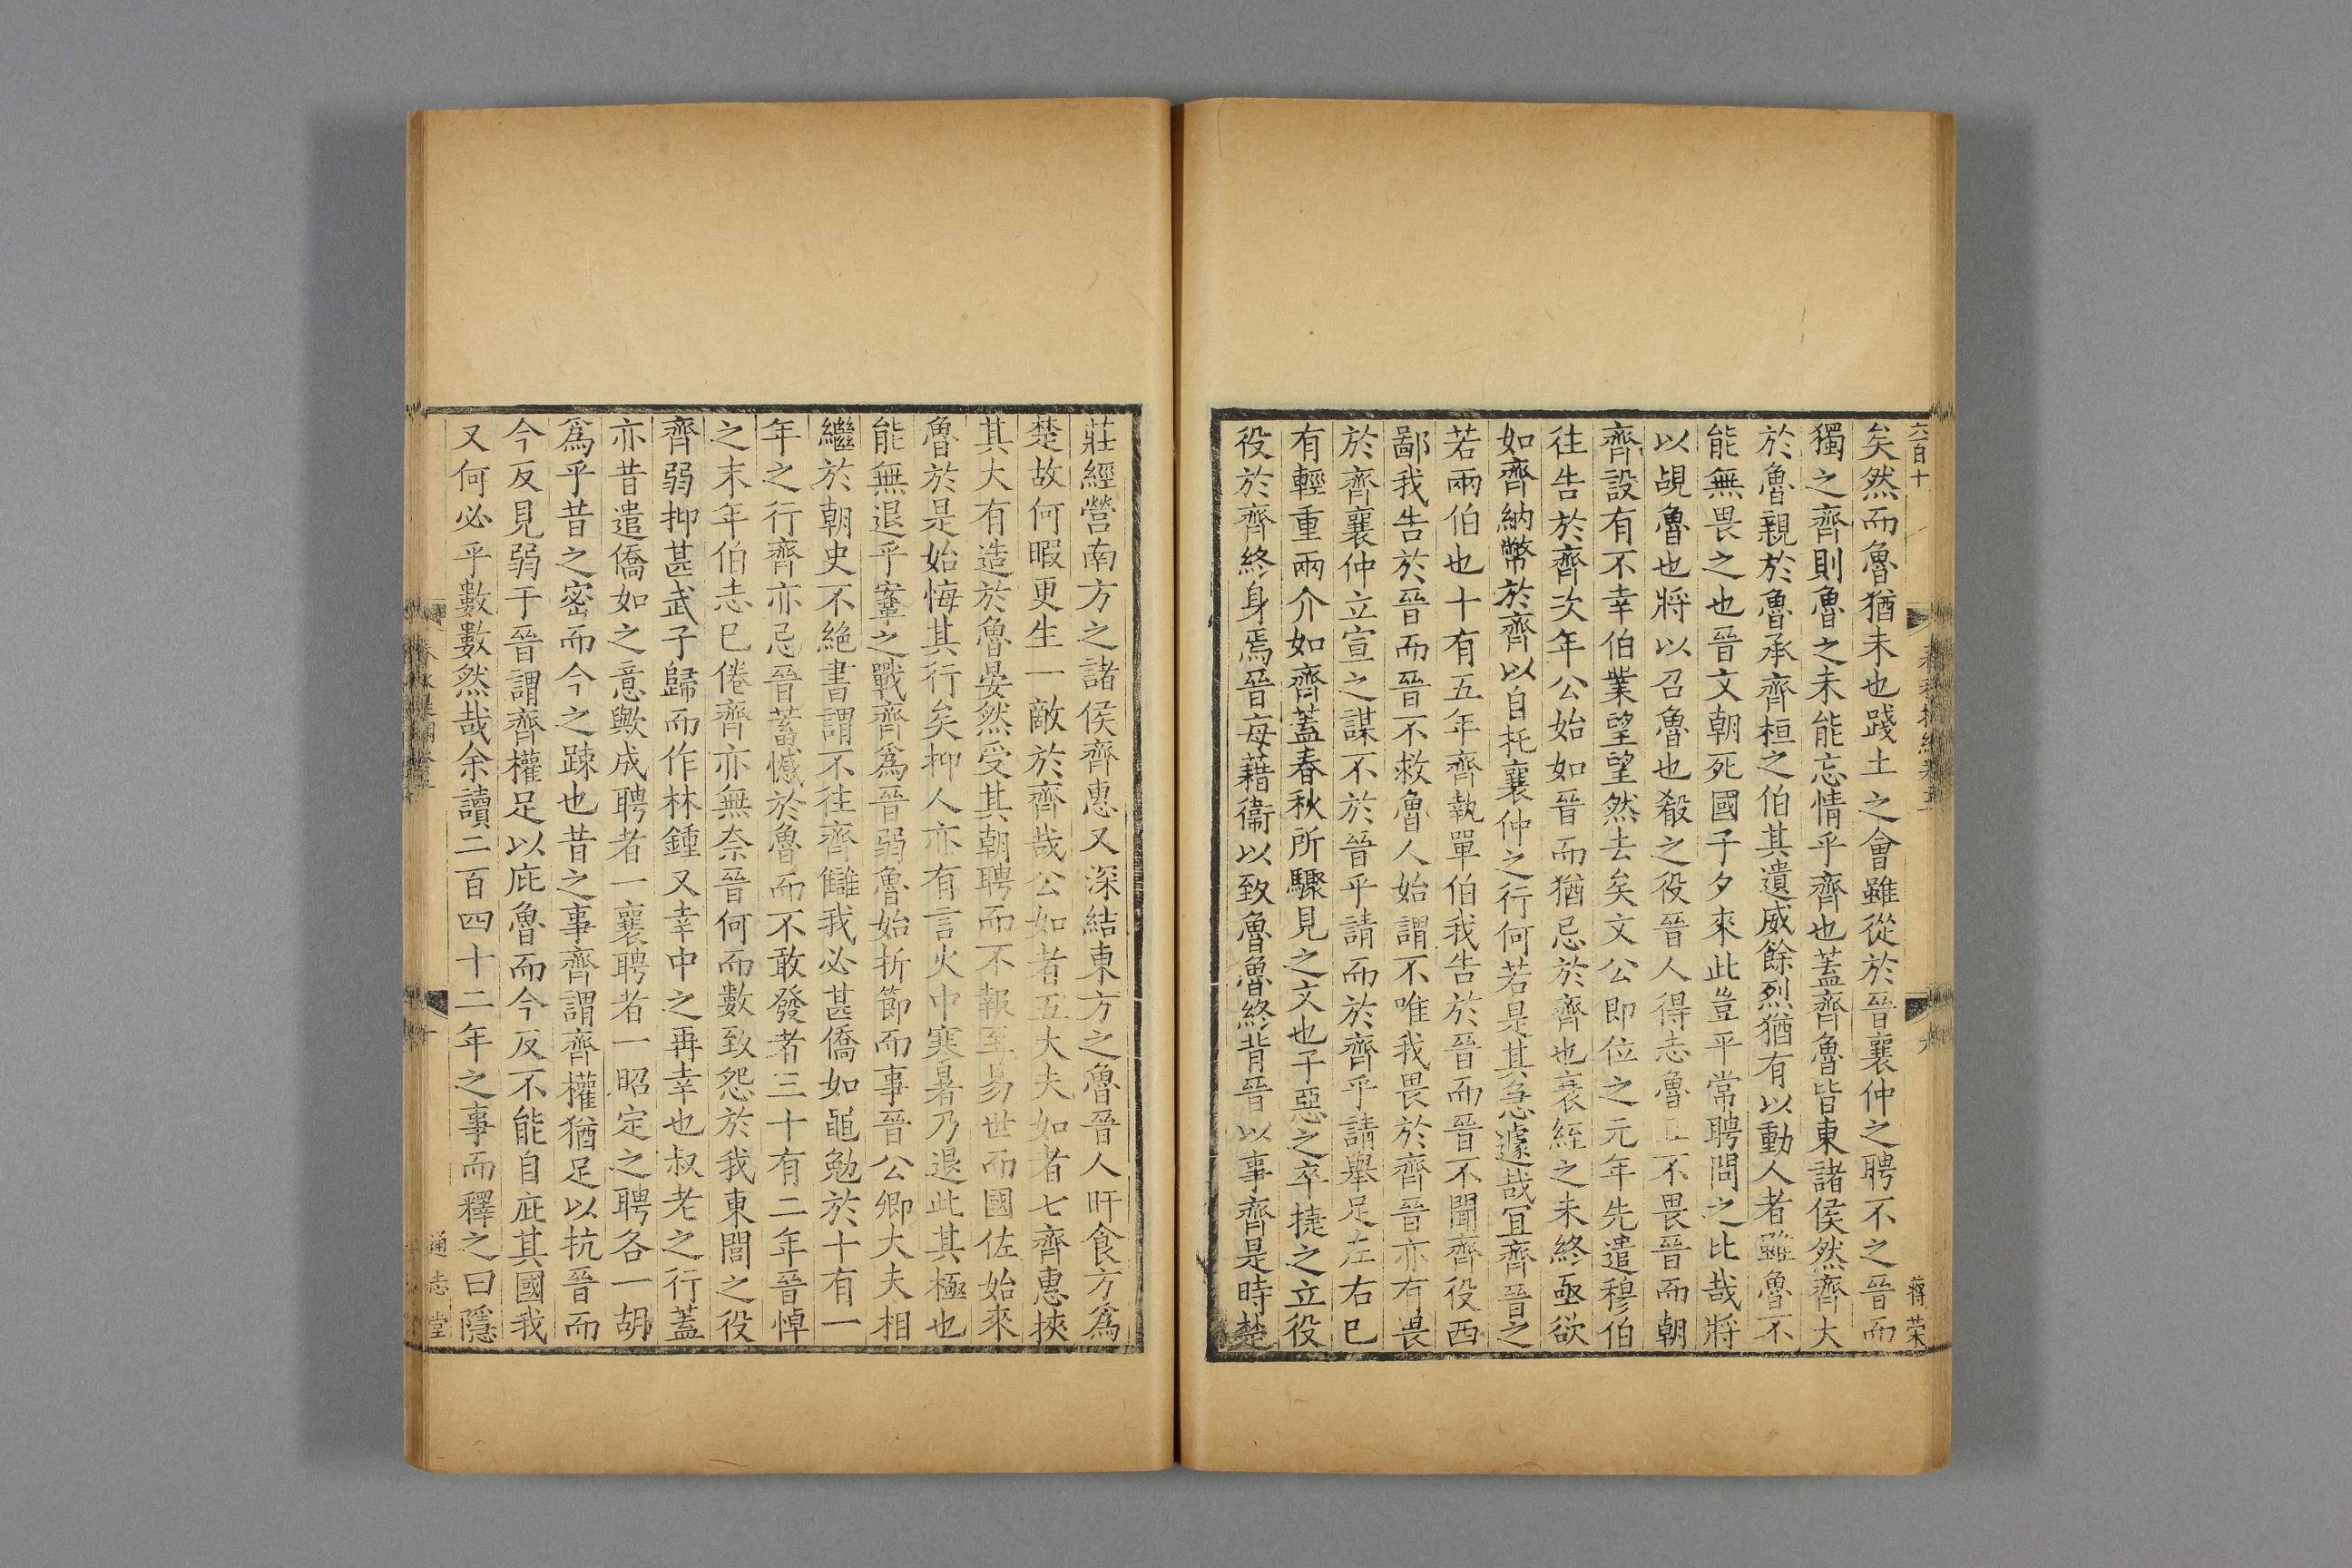 六百十
蔣荣
矣然而魯猶未也踐土之會雖從於晉襄仲之聘不之晉而
獨之齊則魯之未能忘情乎齊也蓋齊魯皆東諸侯然齊大
於魯親於魯承齊桓之伯其遺威餘烈猶有以動人者雖魯不
能無畏之也晉文朝死國子夕來此豈平常聘問之比哉將
以覘魯也將以召魯也殽之役晉人得志魯 不畏晉而朝
齊設有不幸伯業望望然去矣文公即位之元年先遣穆伯
往告於齊次年公始如晉而猶忌於齊也衰絰之未終亟欲
如齊納幣於齊以自托襄仲之行何若是其急遽哉冝齊晉之
若兩伯也十有五年齊執單伯我告於晉而晉不聞齊役西
鄙我告於晉而晉不救魯人始謂不唯我畏於齊晉亦有畏
於齊襄仲立宣之謀不於晉乎請而於齊乎請舉足左右巳
有輕重兩介如齊蓋春秋所驟見之文也子惡之卒捷之立役
役於齊終身焉晉每藉衞以致魯魯終背晉以事齊是時楚
莊經營南方之諸侯齊惠又深結東方之魯晉人旰食方爲
楚故何暇更生一敵於齊哉公如者五大夫如者七齊惠挾
其大有造於魯晏然受其朝聘而不報至易世而國佐始來
魯於是始悔其行矣抑人亦有言火中寒暑乃退此其極也
能無退乎鞌之戰齊爲晉弱魯始折節而事晉公卿大夫相
繼於朝史不絶書謂不往齊讎我必甚僑如黽勉於十有一
年之行齊亦忌晉蓄憾於魯而不敢發者三十有二年晉悼
之末年伯志巳倦齊亦無奈晉何而數致怨於我東閭之役
齊弱抑甚武子歸而作林鍾又幸中之再幸也叔老之行蓋
亦昔遣僑如之意歟成聘者一襄聘者一昭定之聘各一胡
爲乎昔之密而今之踈也昔之事齊謂齊權猶足以抗晉而
今反見弱于晉謂齊權足以庇魯而今反不能自庇其國我
又何必乎數數然哉余讀二百四十二年之事而釋之曰隱
十
通志堂